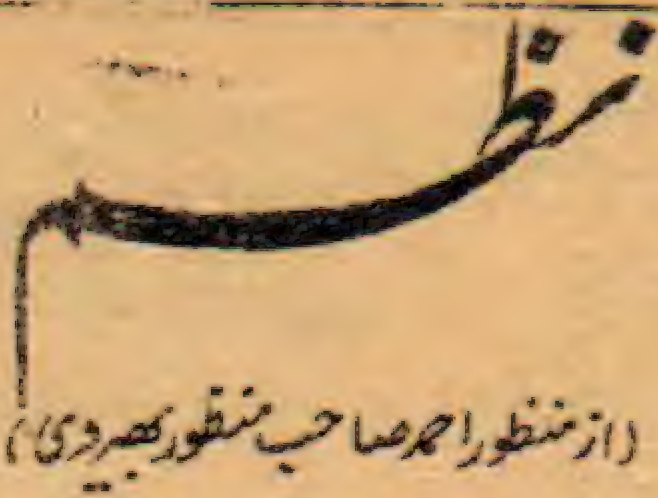 نظم
(از منظور احمد صاحب منظور بھیروی)